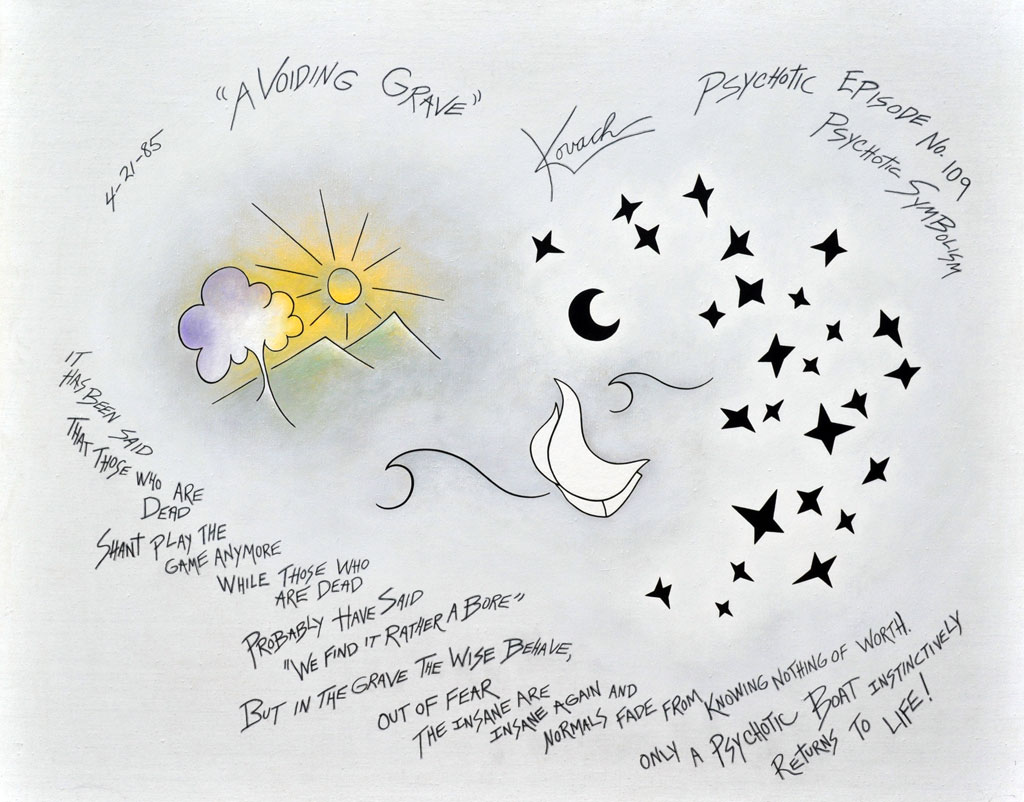 "AVOIDING GRAVE"
4-21-85
Kovach
PSYCHOTIC EPISODE No. 109
PSYCHOTIC SYMBOLISM
IT
HAS BEEN SAID
THAT THOSE WHO ARE
DEAD
SHANT PLAY THE
GAME ANYMORE
WHILE THOSE WHO
ARE DEAD
PROBABLY HAVE SAID
"WE FIND IT RATHER A BORE"
BUT IN THE GRAVE THE WISE BEHAVE,
OUT OF FEAR
THE INSANE ARE
INSANE AGAIN AND
NORMALS FADE FROM KNOWING NOTHING OF WORTH.
ONLY A PSYCHOTIC BOAT INSTINCTIVELY
RETURNS TO LIFE!